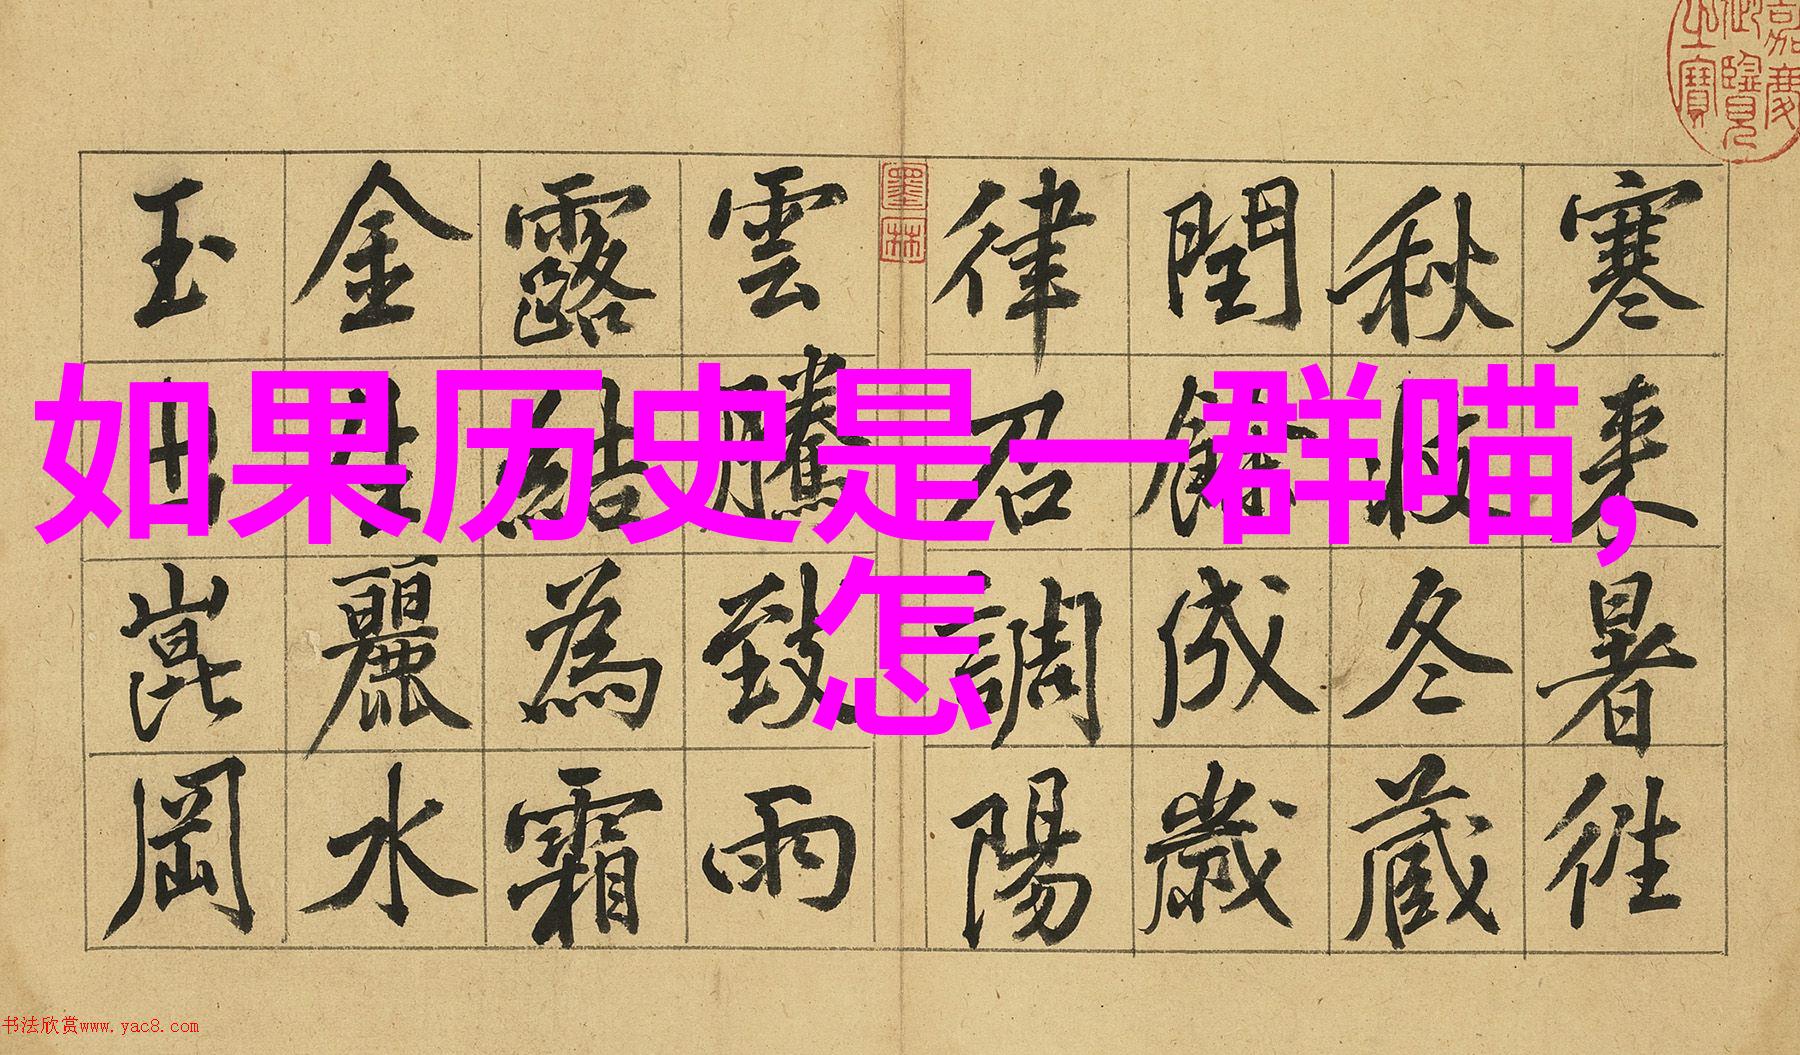 嘉慶
御覽
之寶
寒來暑往
秋收冬藏
閏餘成歲
律召調陽
墨林
雲騰致雨
露結為霜
金生麗水
玉出崑岡
如果历史是一群喵,
怎
书法欣赏www.yac8.com